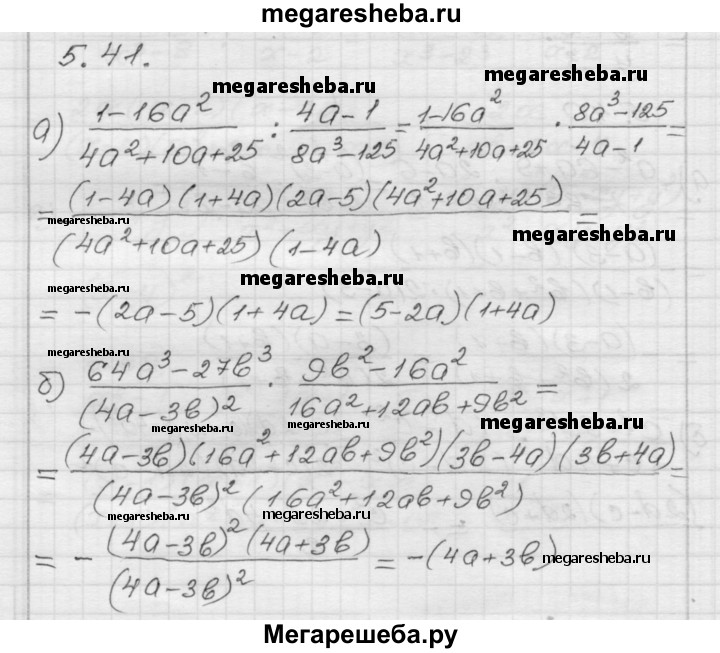 megaresheba.ru
5.41.
megaresheba.ru megaresheba.ru
а) (1-16a²)/(4a²+10a+25) : (4a-1)/(8a³-125) = (1-16a²)/(4a²+10a+25) · (8a³-125)/(4a-1) =
= ((1-4a)(1+4a)(2a-5)(4a²+10a+25))/((4a²+10a+25)(1-4a)) =
megaresheba.ru megaresheba.ru
megaresheba.ru
= -(2a-5)(1+4a) = (5-2a)(1+4a)
megaresheba.ru
б) (64a³-27b³)/((4a-3b)²) · (9b²-16a²)/(16a²+12ab+9b²) =
megaresheba.ru megaresheba.ru megaresheba.ru
= ((4a-3b)(16a²+12ab+9b²)(3b-4a)(3b+4a))/((4a-3b)²(16a²+12ab+9b²)) =
megaresheba.ru megaresheba.ru
= - ((4a-3b)²(4a+3b))/((4a-3b)²) = -(4a+3b)
megaresheba.ru
megaresheba.ru
Мегарешеба.ру